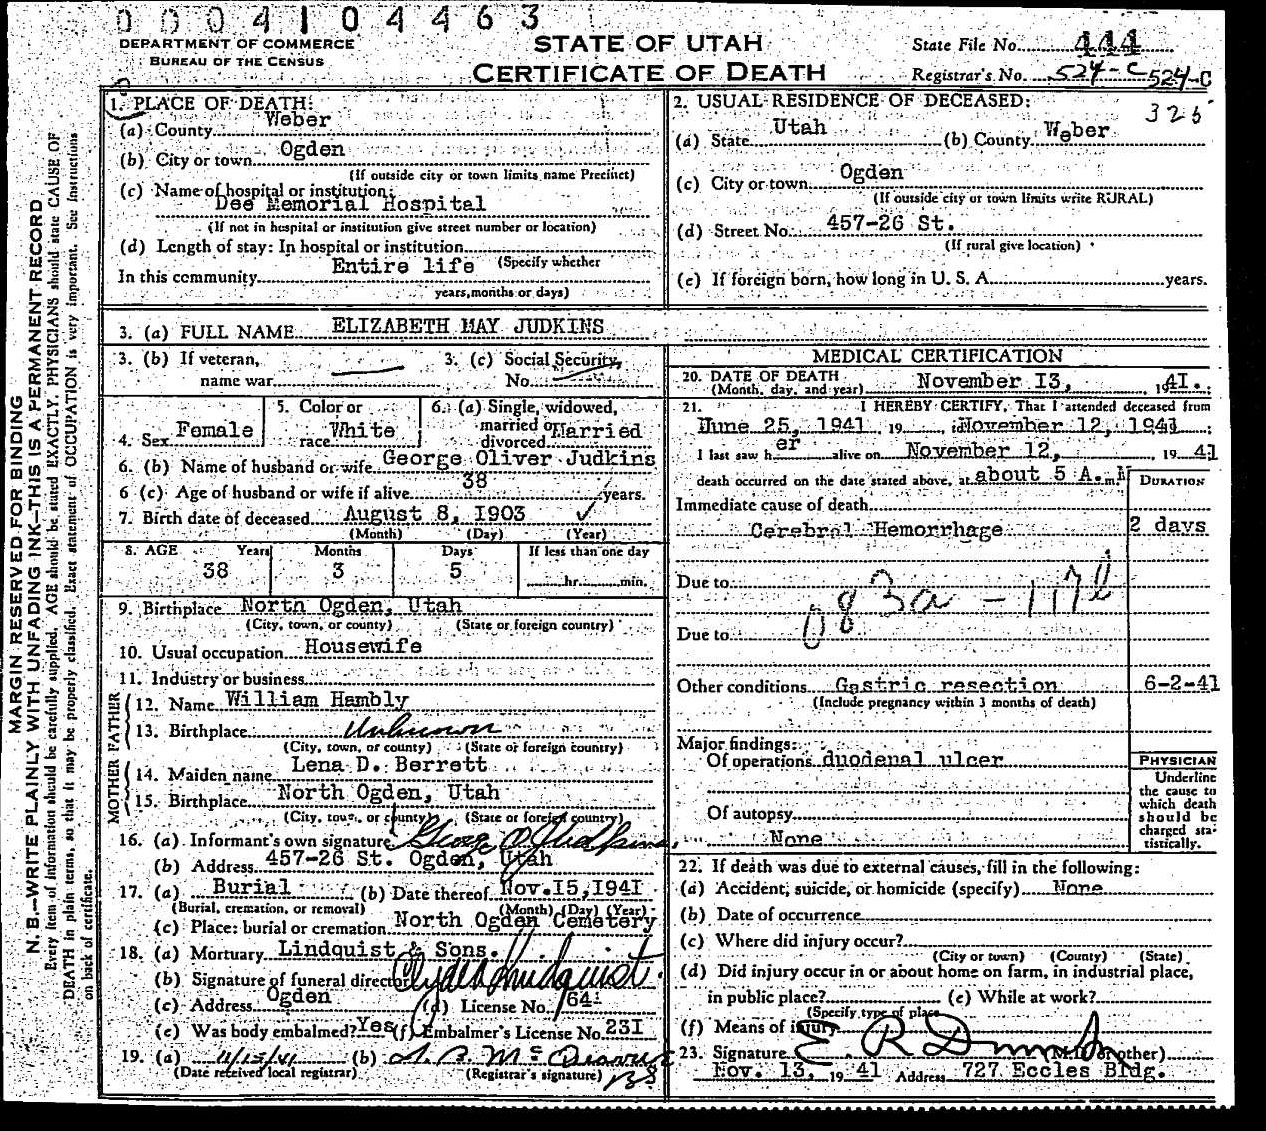 0004104463
DEPARTMENT OF COMMERCE
BUREAU OF THE CENSUS
STATE OF UTAH
CERTIFICATE OF DEATH
State File No. 444
Registrar's No. 524-C 524-C
325
MARGIN RESERVED FOR BINDING
N. B.—WRITE PLAINLY WITH UNFADING INK—THIS IS A PERMANENT RECORD
Every item of information should be carefully supplied. AGE should be stated EXACTLY. PHYSICIANS should state CAUSE OF
DEATH in plain terms, so that it may be properly classified. Exact statement of OCCUPATION is very important. See Instructions
on back of certificate.
1. PLACE OF DEATH:
(a) County Weber
(b) City or town Ogden
(If outside city or town limits name Precinct)
(c) Name of hospital or institution:
Dee Memorial Hospital
(If not in hospital or institution give street number or location)
(d) Length of stay: In hospital or institution
(Specify whether
In this community Entire life
years, months or days)
2. USUAL RESIDENCE OF DECEASED:
(a) State Utah (b) County Weber
(c) City or town Ogden
(If outside city or town limits write RURAL)
(d) Street No. 457-26 St.
(If rural give location)
(e) If foreign born, how long in U. S. A. years.
3. (a) FULL NAME ELIZABETH MAY JUDKINS
3. (b) If veteran, name war
3. (c) Social Security No.
4. Sex Female
5. Color or race White
6. (a) Single, widowed, married or divorced Married
6. (b) Name of husband or wife George Oliver Judkins
6 (c) Age of husband or wife if alive 38 years.
7. Birth date of deceased August 8, 1903
(Month) (Day) (Year)
8. AGE Years Months Days If less than one day
38 3 5 hr. min.
9. Birthplace North Ogden, Utah
(City, town, or county) (State or foreign country)
10. Usual occupation Housewife
11. Industry or business
FATHER
12. Name William Hambly
13. Birthplace Unknown
(City, town, or county) (State or foreign country)
MOTHER
14. Maiden name Lena D. Berrett
15. Birthplace North Ogden, Utah
(City, town, or county) (State or foreign country)
16. (a) Informant's own signature George O Judkins
(b) Address 457-26 St. Ogden, Utah
17. (a) Burial (b) Date thereof Nov.15,1941
(Burial, cremation, or removal) (Month) (Day) (Year)
(c) Place: burial or cremation North Ogden Cemetery
18. (a) Mortuary Lindquist & Sons.
(b) Signature of funeral director Clyde Lindquist
(c) Address Ogden (d) License No. 641
(e) Was body embalmed? Yes (f) Embalmer's License No. 231
19. (a) 11/15/41 (b)
(Date received local registrar) (Registrar's signature)
MEDICAL CERTIFICATION
20. DATE OF DEATH
(Month, day, and year) November 13, 1941.
21. I HEREBY CERTIFY, That I attended deceased from
June 25, 1941 19 November 12, 1941
I last saw her alive on November 12, 1941
death occurred on the date stated above, at about 5 A. M
DURATION
Immediate cause of death
Cerebral Hemorrhage 2 days
Due to 083a - 117b
Due to
Other conditions Gastric resection 6-2-41
(Include pregnancy within 3 months of death)
Major findings:
Of operations duodenal ulcer
Of autopsy
None
PHYSICIAN
Underline
the cause to
which death
should be
charged sta-
tistically.
22. If death was due to external causes, fill in the following:
(a) Accident, suicide, or homicide (specify) None
(b) Date of occurrence
(c) Where did injury occur?
(City or town) (County) (State)
(d) Did injury occur in or about home on farm, in industrial place,
in public place? (e) While at work?
(Specify type of place
(f) Means of injury
23. Signature E. R. (M.D. or other)
Nov. 13, 1941 Address 727 Eccles Bldg.